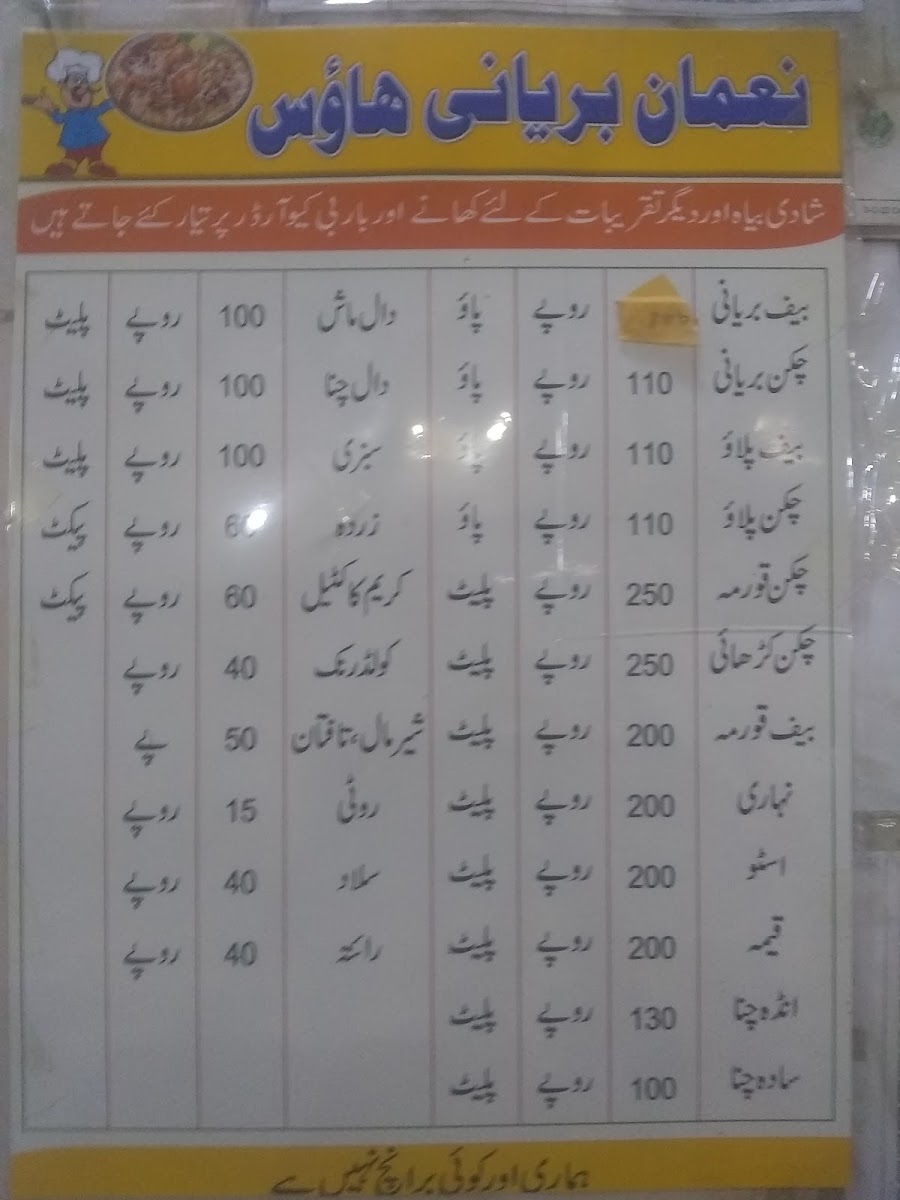 نعمان بریانی ھاؤس
شادی بیاہ اور دیگر تقریبات کے لئے کھانے اور باربی کیو آرڈر پر تیار کئے جاتے ہیں
بیف بریانی روپے پاؤ دال ماش 100 روپے پلیٹ
چکن بریانی 110 روپے پاؤ دال چنا 100 روپے پلیٹ
بیف پلاؤ 110 روپے پاؤ سبزی 100 روپے پلیٹ
چکن پلاؤ 110 روپے پاؤ زردہ 60 روپے پیکٹ
چکن قورمہ 250 روپے پلیٹ کریم کاکٹیل 60 روپے پیکٹ
چکن کڑھائی 250 روپے پلیٹ کولڈرنک 40 روپے
بیف قورمہ 200 روپے پلیٹ شیرمال، تافتان 50 پے
نہاری 200 روپے پلیٹ روٹی 15 روپے
اسٹو 200 روپے پلیٹ سلاد 40 روپے
قیمہ 200 روپے پلیٹ رائتہ 40 روپے
انڈہ چنا 130 روپے پلیٹ
سادہ چنا 100 روپے پلیٹ
ہماری اور کوئی برانچ نہیں ہے